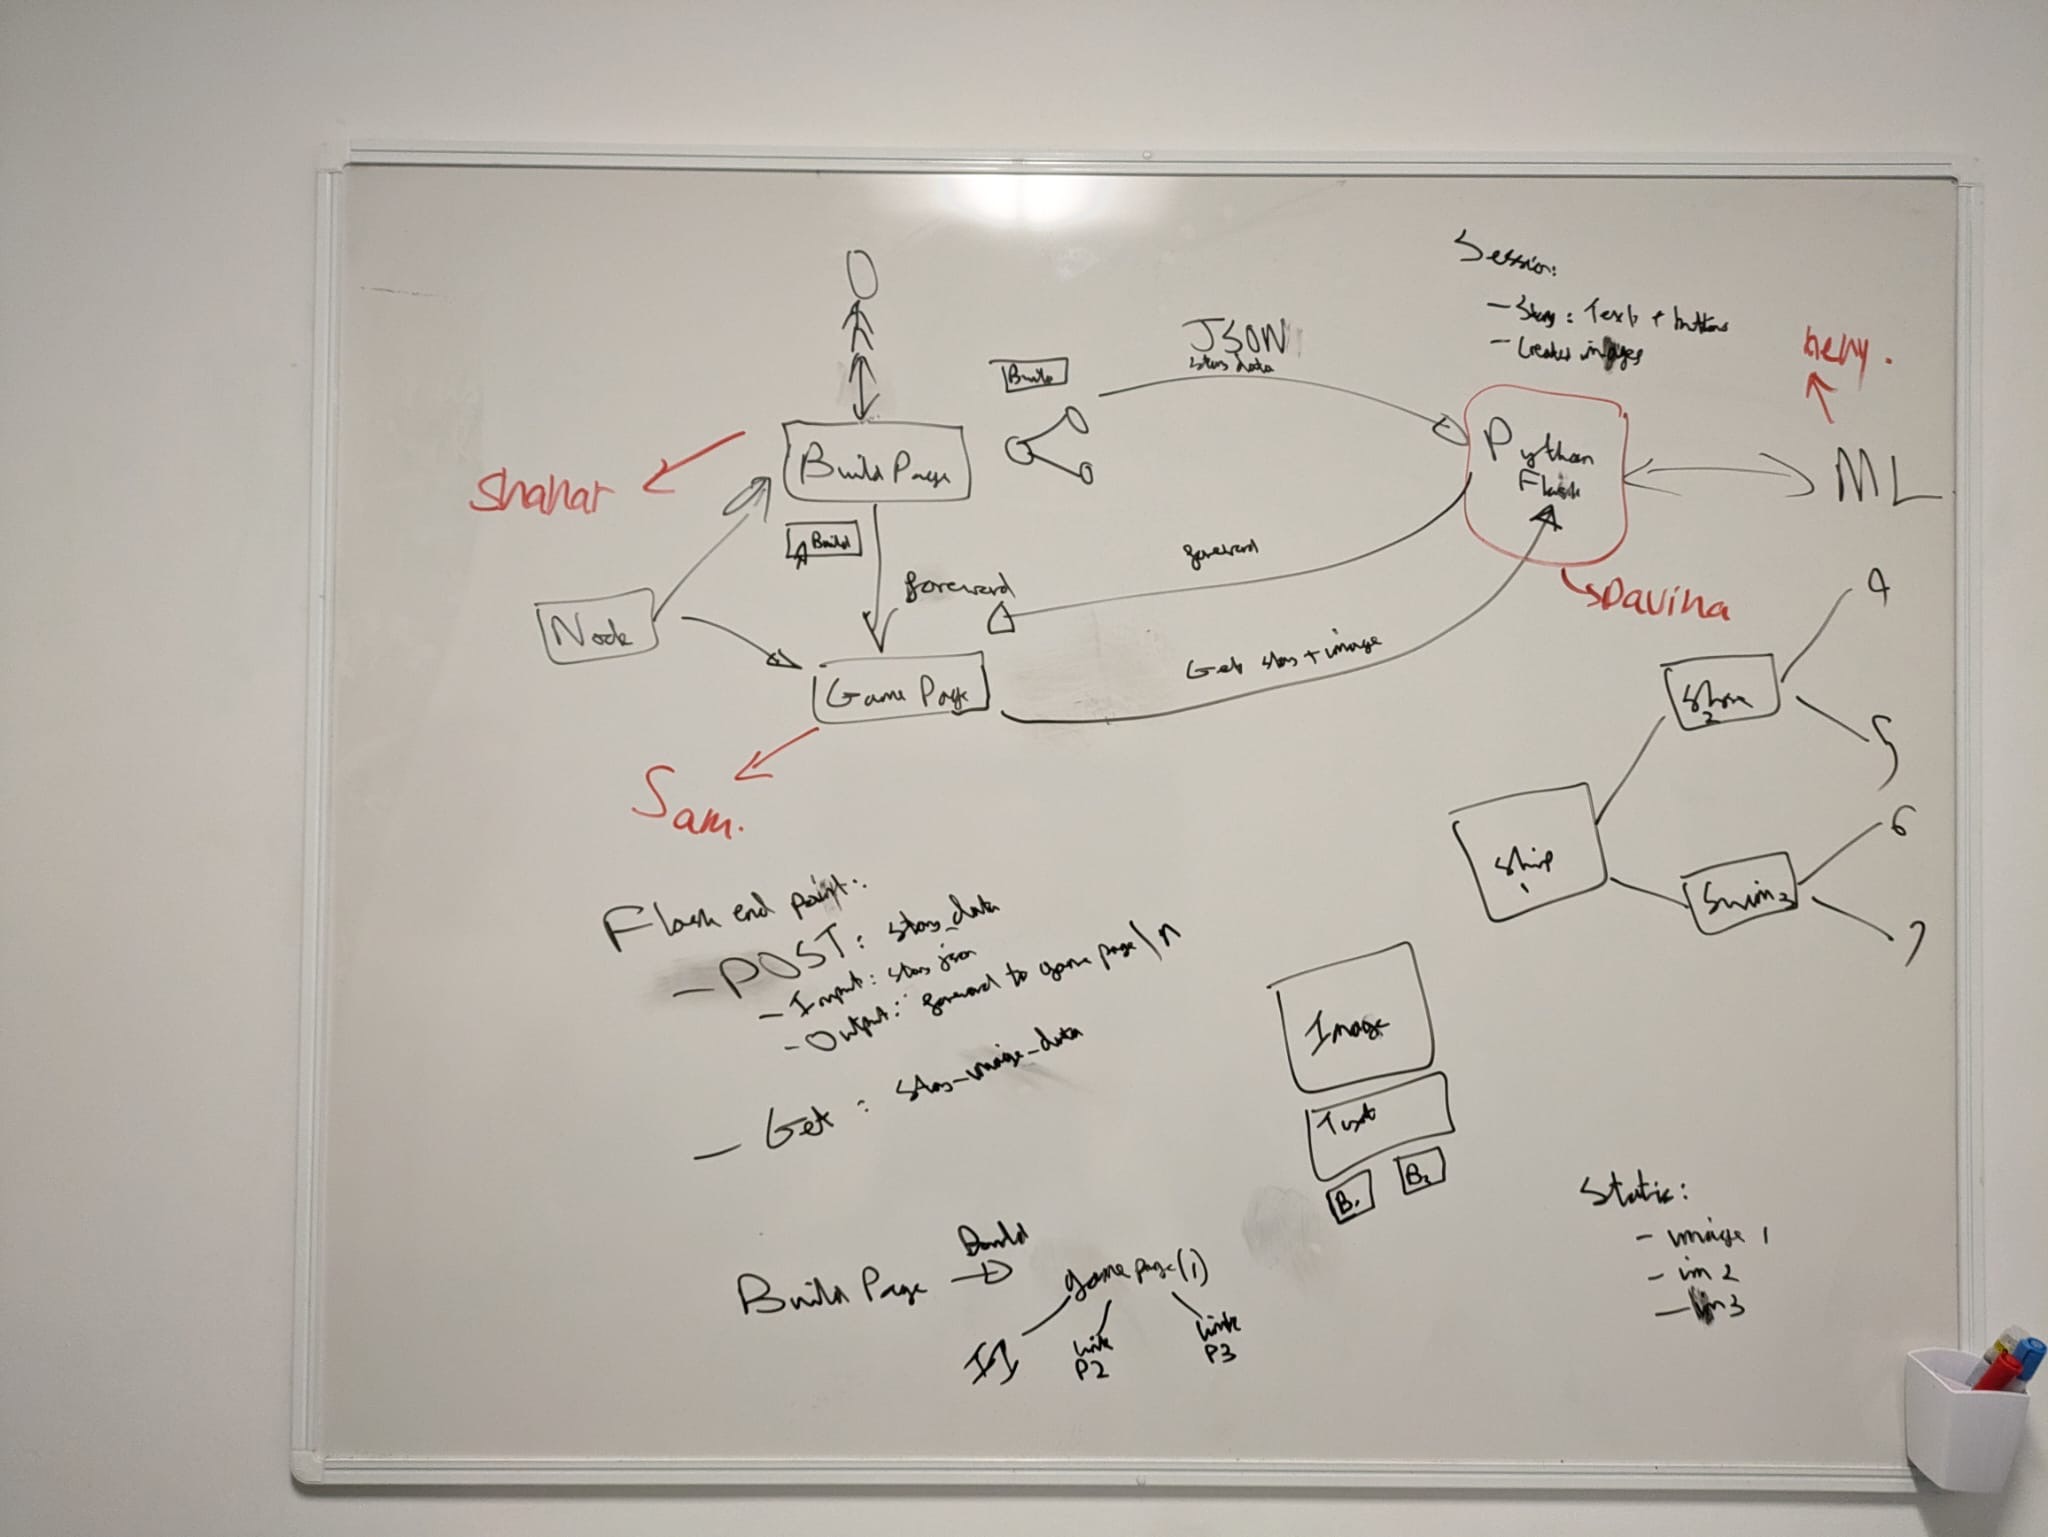 Session:
- Story: Text + buttons
- Created images
JSON
story data
Build
Python
Flask
ML
Build Page
Shahar
Build
foreward
foreward
Node
Davina
Game Page
Get story + image
Sam.
4
Shore
2
5
6
Ship
1
Swim 3
7
Flask end point:
- POST: story_data
- Input: story json
- Output: foreward to game page/n
- Get: story_image_data
Image
Text
B1
B2
Build Page
Build
game page(1)
link
P2
link
P3
Static:
- image 1
- im 2
- im 3